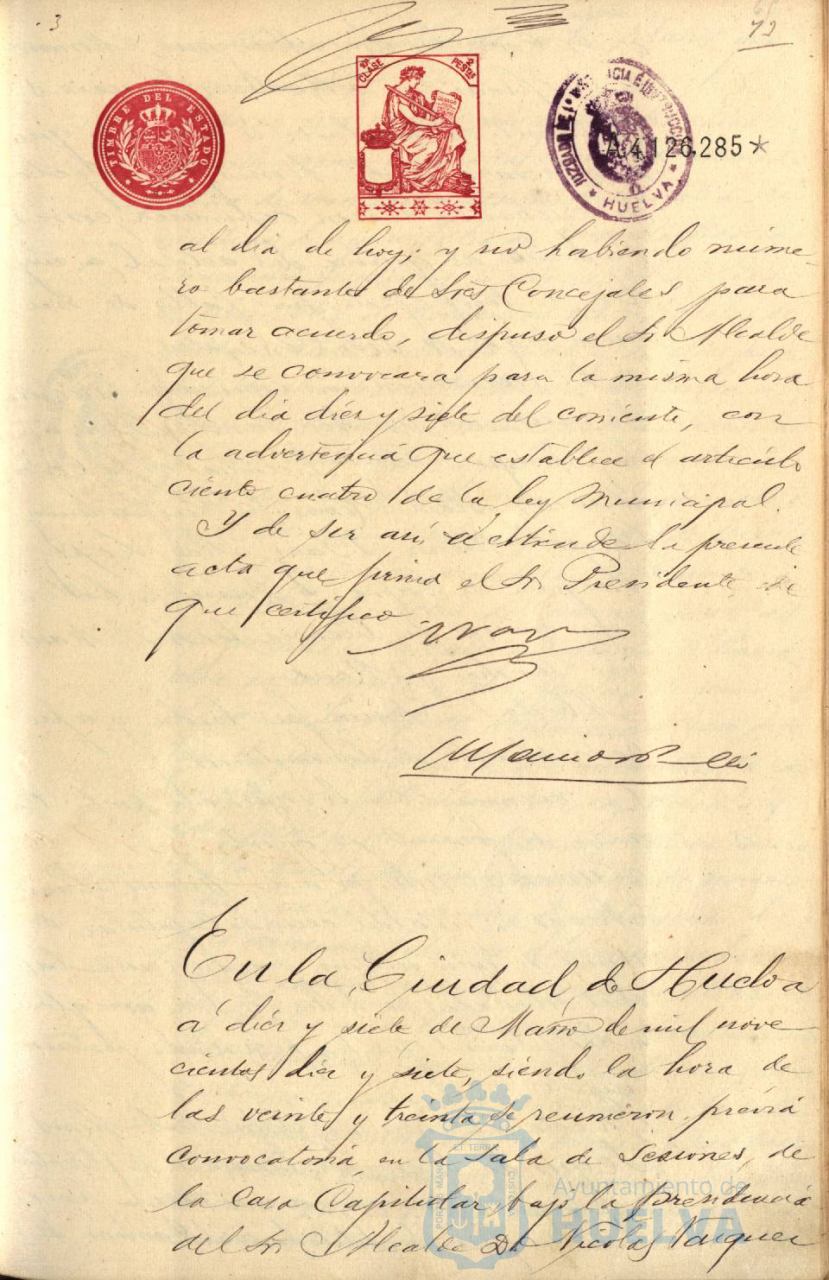 3
72
TIMBRE DEL ESTADO
10ª CLASE
2 PESETAS
JUZGADO DE 1ª INSTANCIA É INSTRUCCION
* HUELVA *
A4.126.285*
al dia de hoy; y no habiendo núme-
ro bastante de Sres Concejales para
tomar acuerdo, dispuso el Sr Alcalde
que se convocara para la misma hora
del dia diez y siete del corriente, con
la advertencia que establece el artículo
ciento cuatro de la ley Municipal.
Y de ser así se extiende la presente
acta que firma el Sr Presidente de
que certifico
En la Ciudad de Huelva
á diez y siete de Marzo de mil nove-
cientos diez y siete, siendo la hora de
las veinte y treinta se reunieron previa
convocatoria, en la Sala de Sesiones, de
la Casa Capitular, bajo la presidencia
del Sr Alcalde Dn Nicolas Vazquez
Ayuntamiento de
HUELVA